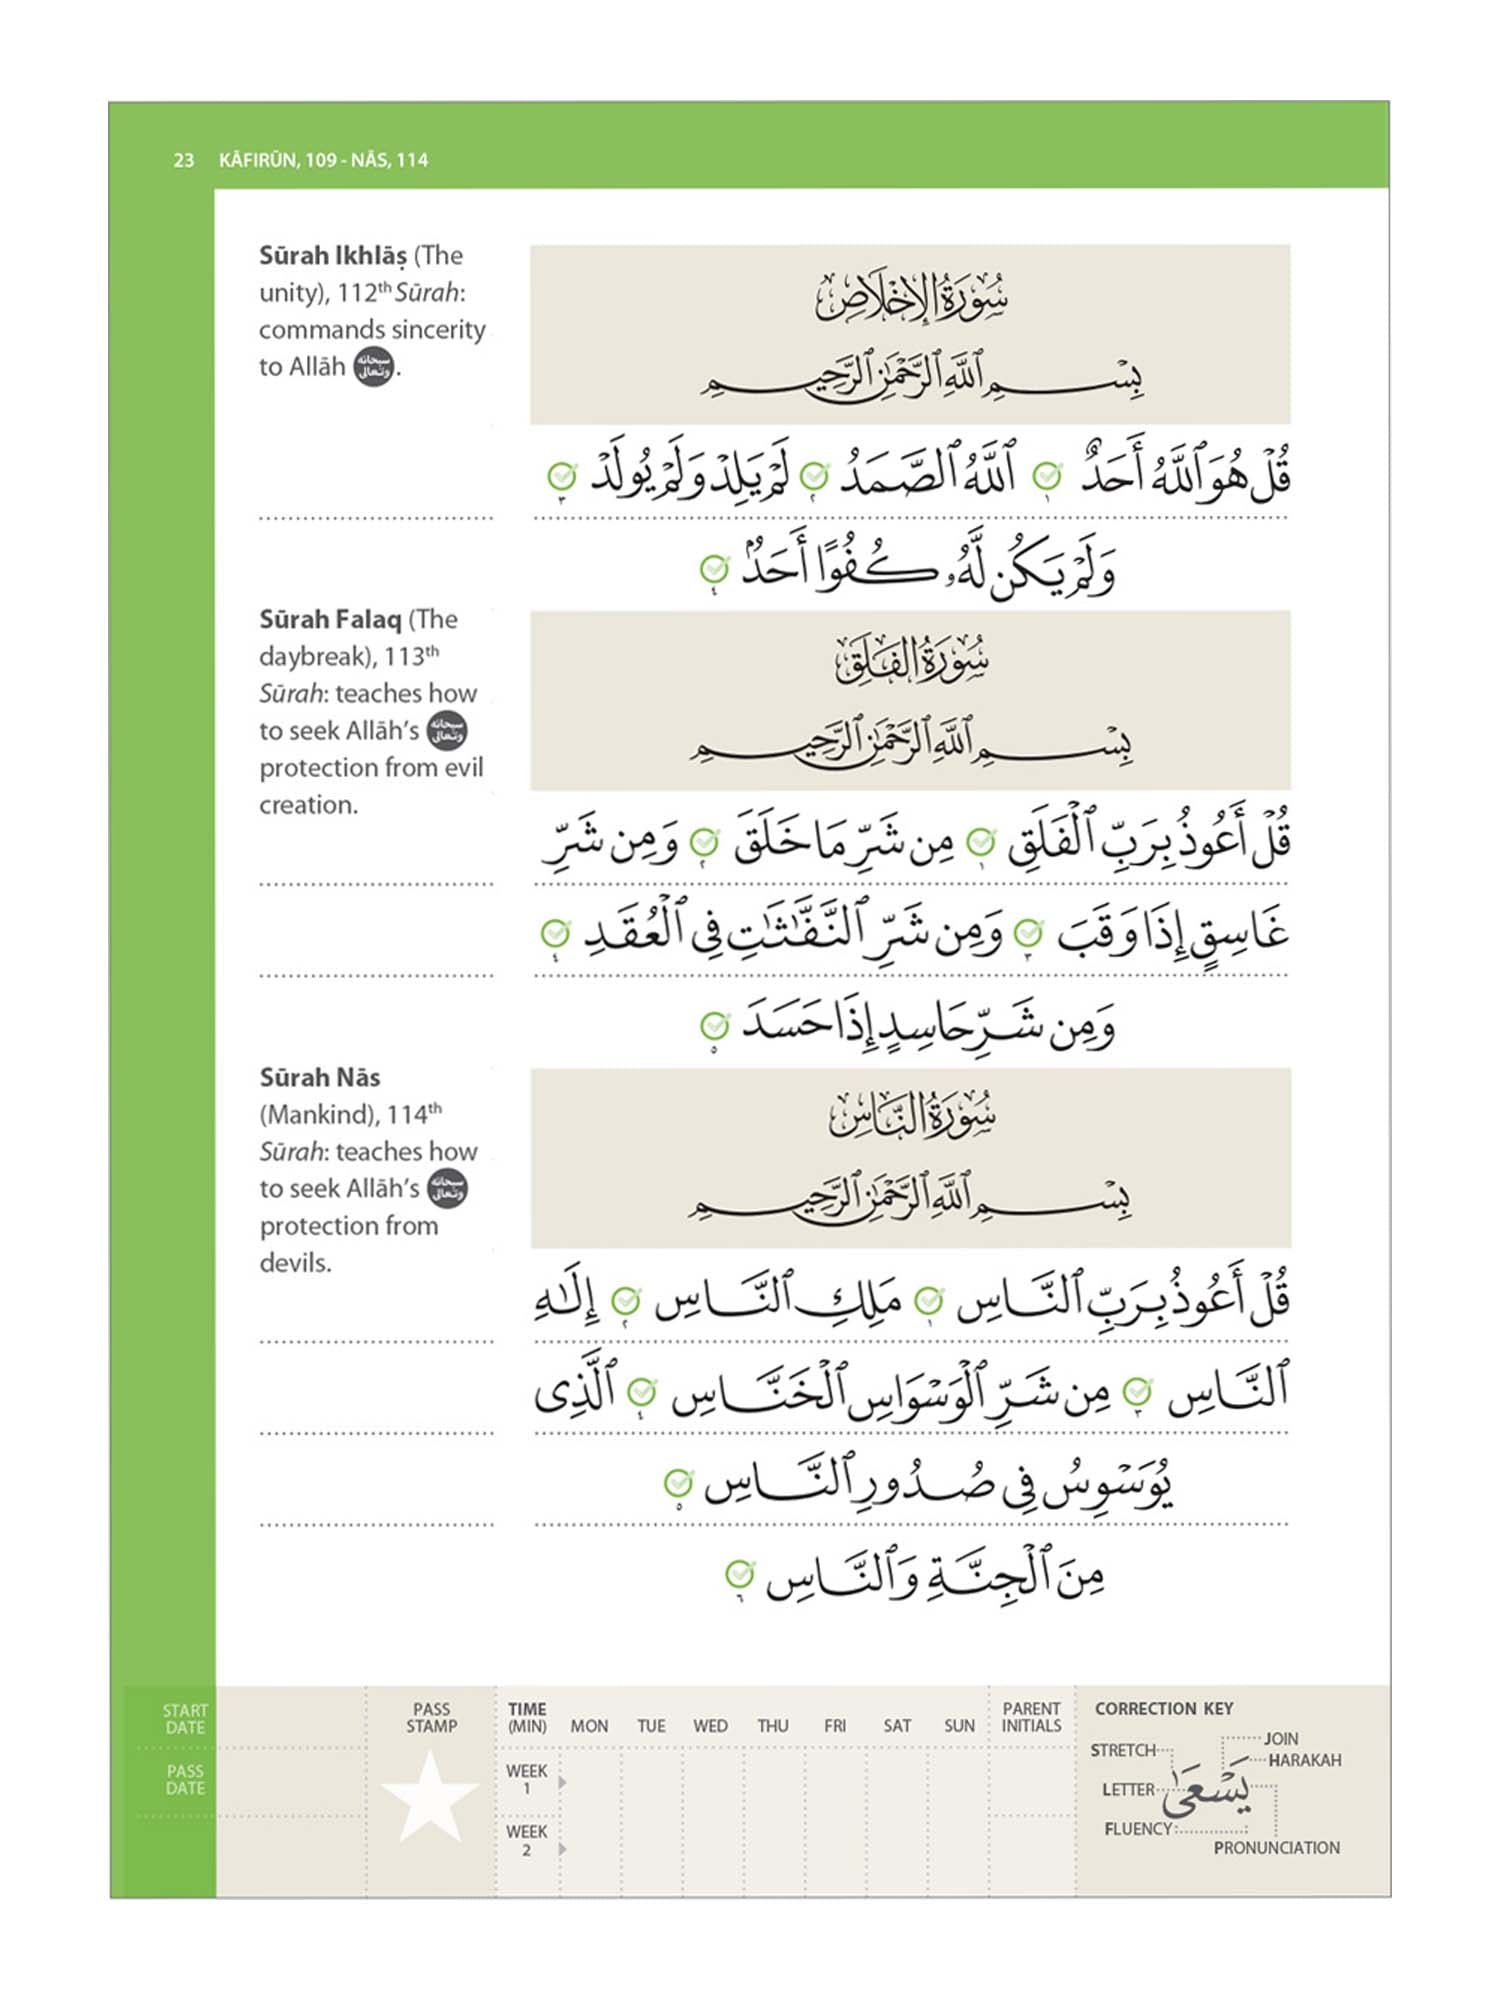 23 KĀFIRŪN, 109 - NĀS, 114
Sūrah Ikhlāṣ (The
unity), 112th Sūrah:
commands sincerity
to Allāh سبحانه وتعالى.
سُورَةُ الإِخْلَاصِ
بِسْمِ ٱللَّهِ ٱلرَّحْمَٰنِ ٱلرَّحِيمِ
قُلْ هُوَ ٱللَّهُ أَحَدٌ ١ ٱللَّهُ ٱلصَّمَدُ ٢ لَمْ يَلِدْ وَلَمْ يُولَدْ ٣
وَلَمْ يَكُن لَّهُۥ كُفُوًا أَحَدٌۢ ٤
Sūrah Falaq (The
daybreak), 113th
Sūrah: teaches how
to seek Allāh's سبحانه وتعالى
protection from evil
creation.
سُورَةُ الفَلَقِ
بِسْمِ ٱللَّهِ ٱلرَّحْمَٰنِ ٱلرَّحِيمِ
قُلْ أَعُوذُ بِرَبِّ ٱلْفَلَقِ ١ مِن شَرِّ مَا خَلَقَ ٢ وَمِن شَرِّ
غَاسِقٍ إِذَا وَقَبَ ٣ وَمِن شَرِّ ٱلنَّفَّٰثَٰتِ فِى ٱلْعُقَدِ ٤
وَمِن شَرِّ حَاسِدٍ إِذَا حَسَدَ ٥
Sūrah Nās
(Mankind), 114th
Sūrah: teaches how
to seek Allāh's سبحانه وتعالى
protection from
devils.
سُورَةُ النَّاسِ
بِسْمِ ٱللَّهِ ٱلرَّحْمَٰنِ ٱلرَّحِيمِ
قُلْ أَعُوذُ بِرَبِّ ٱلنَّاسِ ١ مَلِكِ ٱلنَّاسِ ٢ إِلَٰهِ
ٱلنَّاسِ ٣ مِن شَرِّ ٱلْوَسْوَاسِ ٱلْخَنَّاسِ ٤ ٱلَّذِى
يُوَسْوِسُ فِى صُدُورِ ٱلنَّاسِ ٥
مِنَ ٱلْجِنَّةِ وَٱلنَّاسِ ٦
START
DATE
PASS
DATE
PASS
STAMP
TIME
(MIN) MON TUE WED THU FRI SAT SUN
WEEK
1
WEEK
2
PARENT
INITIALS
CORRECTION KEY
STRETCH
JOIN
HARAKAH
LETTER
يَسْعَىٰ
FLUENCY
PRONUNCIATION